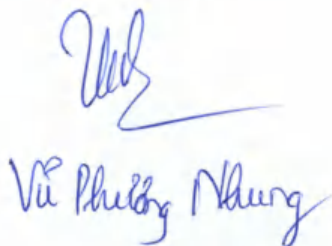 Vũ Phương Nhung